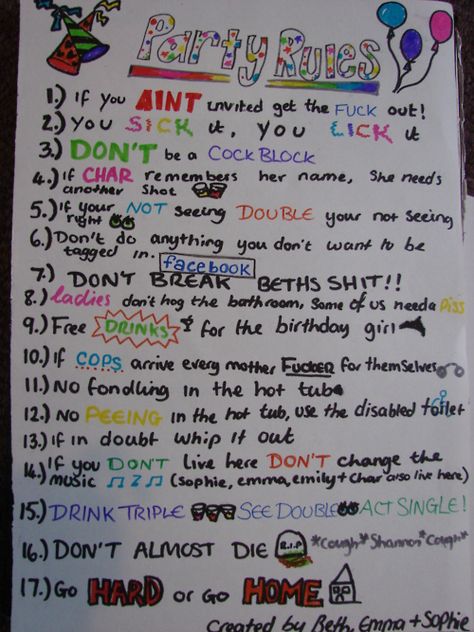 Party Rules
1.) If you AINT invited get the FUCK out!
2.) You SICK it, you LICK it
3.) DON'T be a COCKBLOCK
4.) If CHAR remembers her name, She needs
another shot
5.) If your NOT seeing DOUBLE your not seeing
right
6.) Don't do anything you don't want to be
tagged in. facebook
7.) DON'T BREAK BETHS SHIT!!
8.) ladies don't hog the bathroom, some of us need a piss
9.) Free DRINKS for the birthday girl
10.) If COPS arrive every mother FUCKER for themselves
11.) No fondling in the hot tub
12.) No PEEING in the hot tub, use the disabled toilet
13.) If in doubt whip it out
14.) If you DON'T live here DON'T change the
music (Sophie, emma, emily + Char also live here)
15.) DRINK TRIPLE SEE DOUBLE ACT SINGLE!
16.) DON'T ALMOST DIE R.I.P *Cough* Shannon *Cough*
17.) Go HARD or Go HOME
Created by Beth, Emma + Sophie